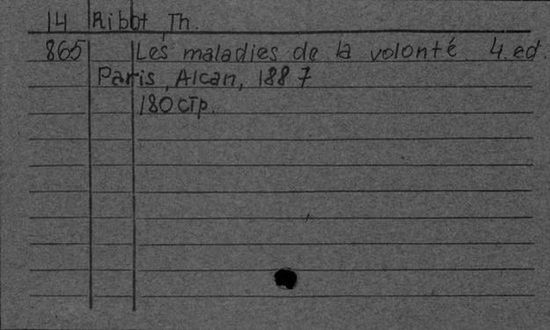 14 Ribot, Th.
865 Les maladies de la volonté 4. ed.
Paris, Alcan, 1887
180 стр.